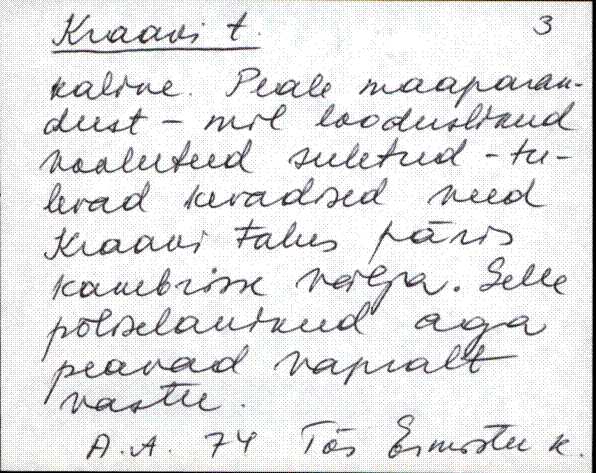 Kraavi t. 3
kaline. Peale maaparan-
dust - mil looduslikud
vooluteed suletud - tu-
levad kevadised veed
Kraavi talus päris
kambrisse välja. Selle
põliselanikud aga
peavad vapralt
vastu.
A.A. 74 Tõs Ermistu k.